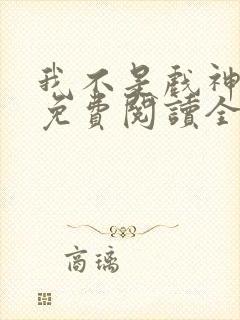 我不是戲神
免費閱讀全
高璃